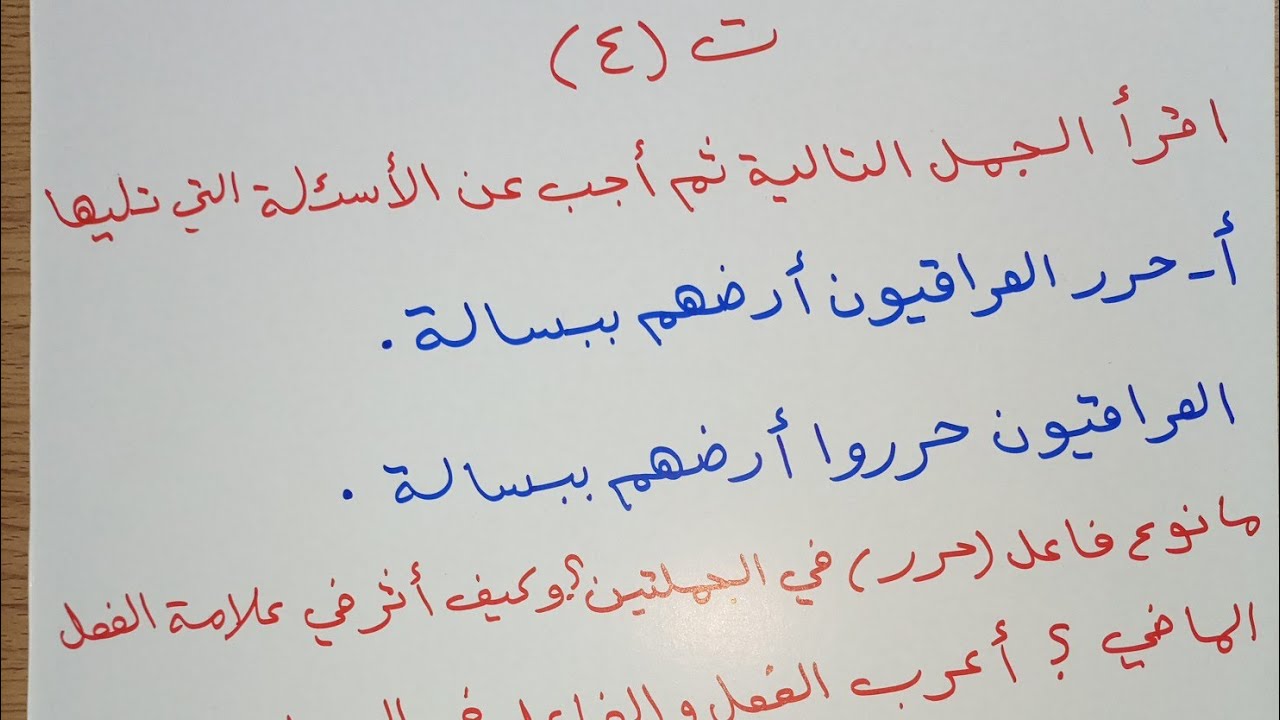 ت (٤)
اقرأ الجمل التالية ثم أجب عن الأسئلة التي تليها
أ- حرر العراقيون أرضهم ببسالة .
العراقيون حرروا أرضهم ببسالة .
ما نوع فاعل (حرر) في الجملتين؟ وكيف أثر في علامة الفعل
الماضي ؟ أعرب الفعل والفاعل في